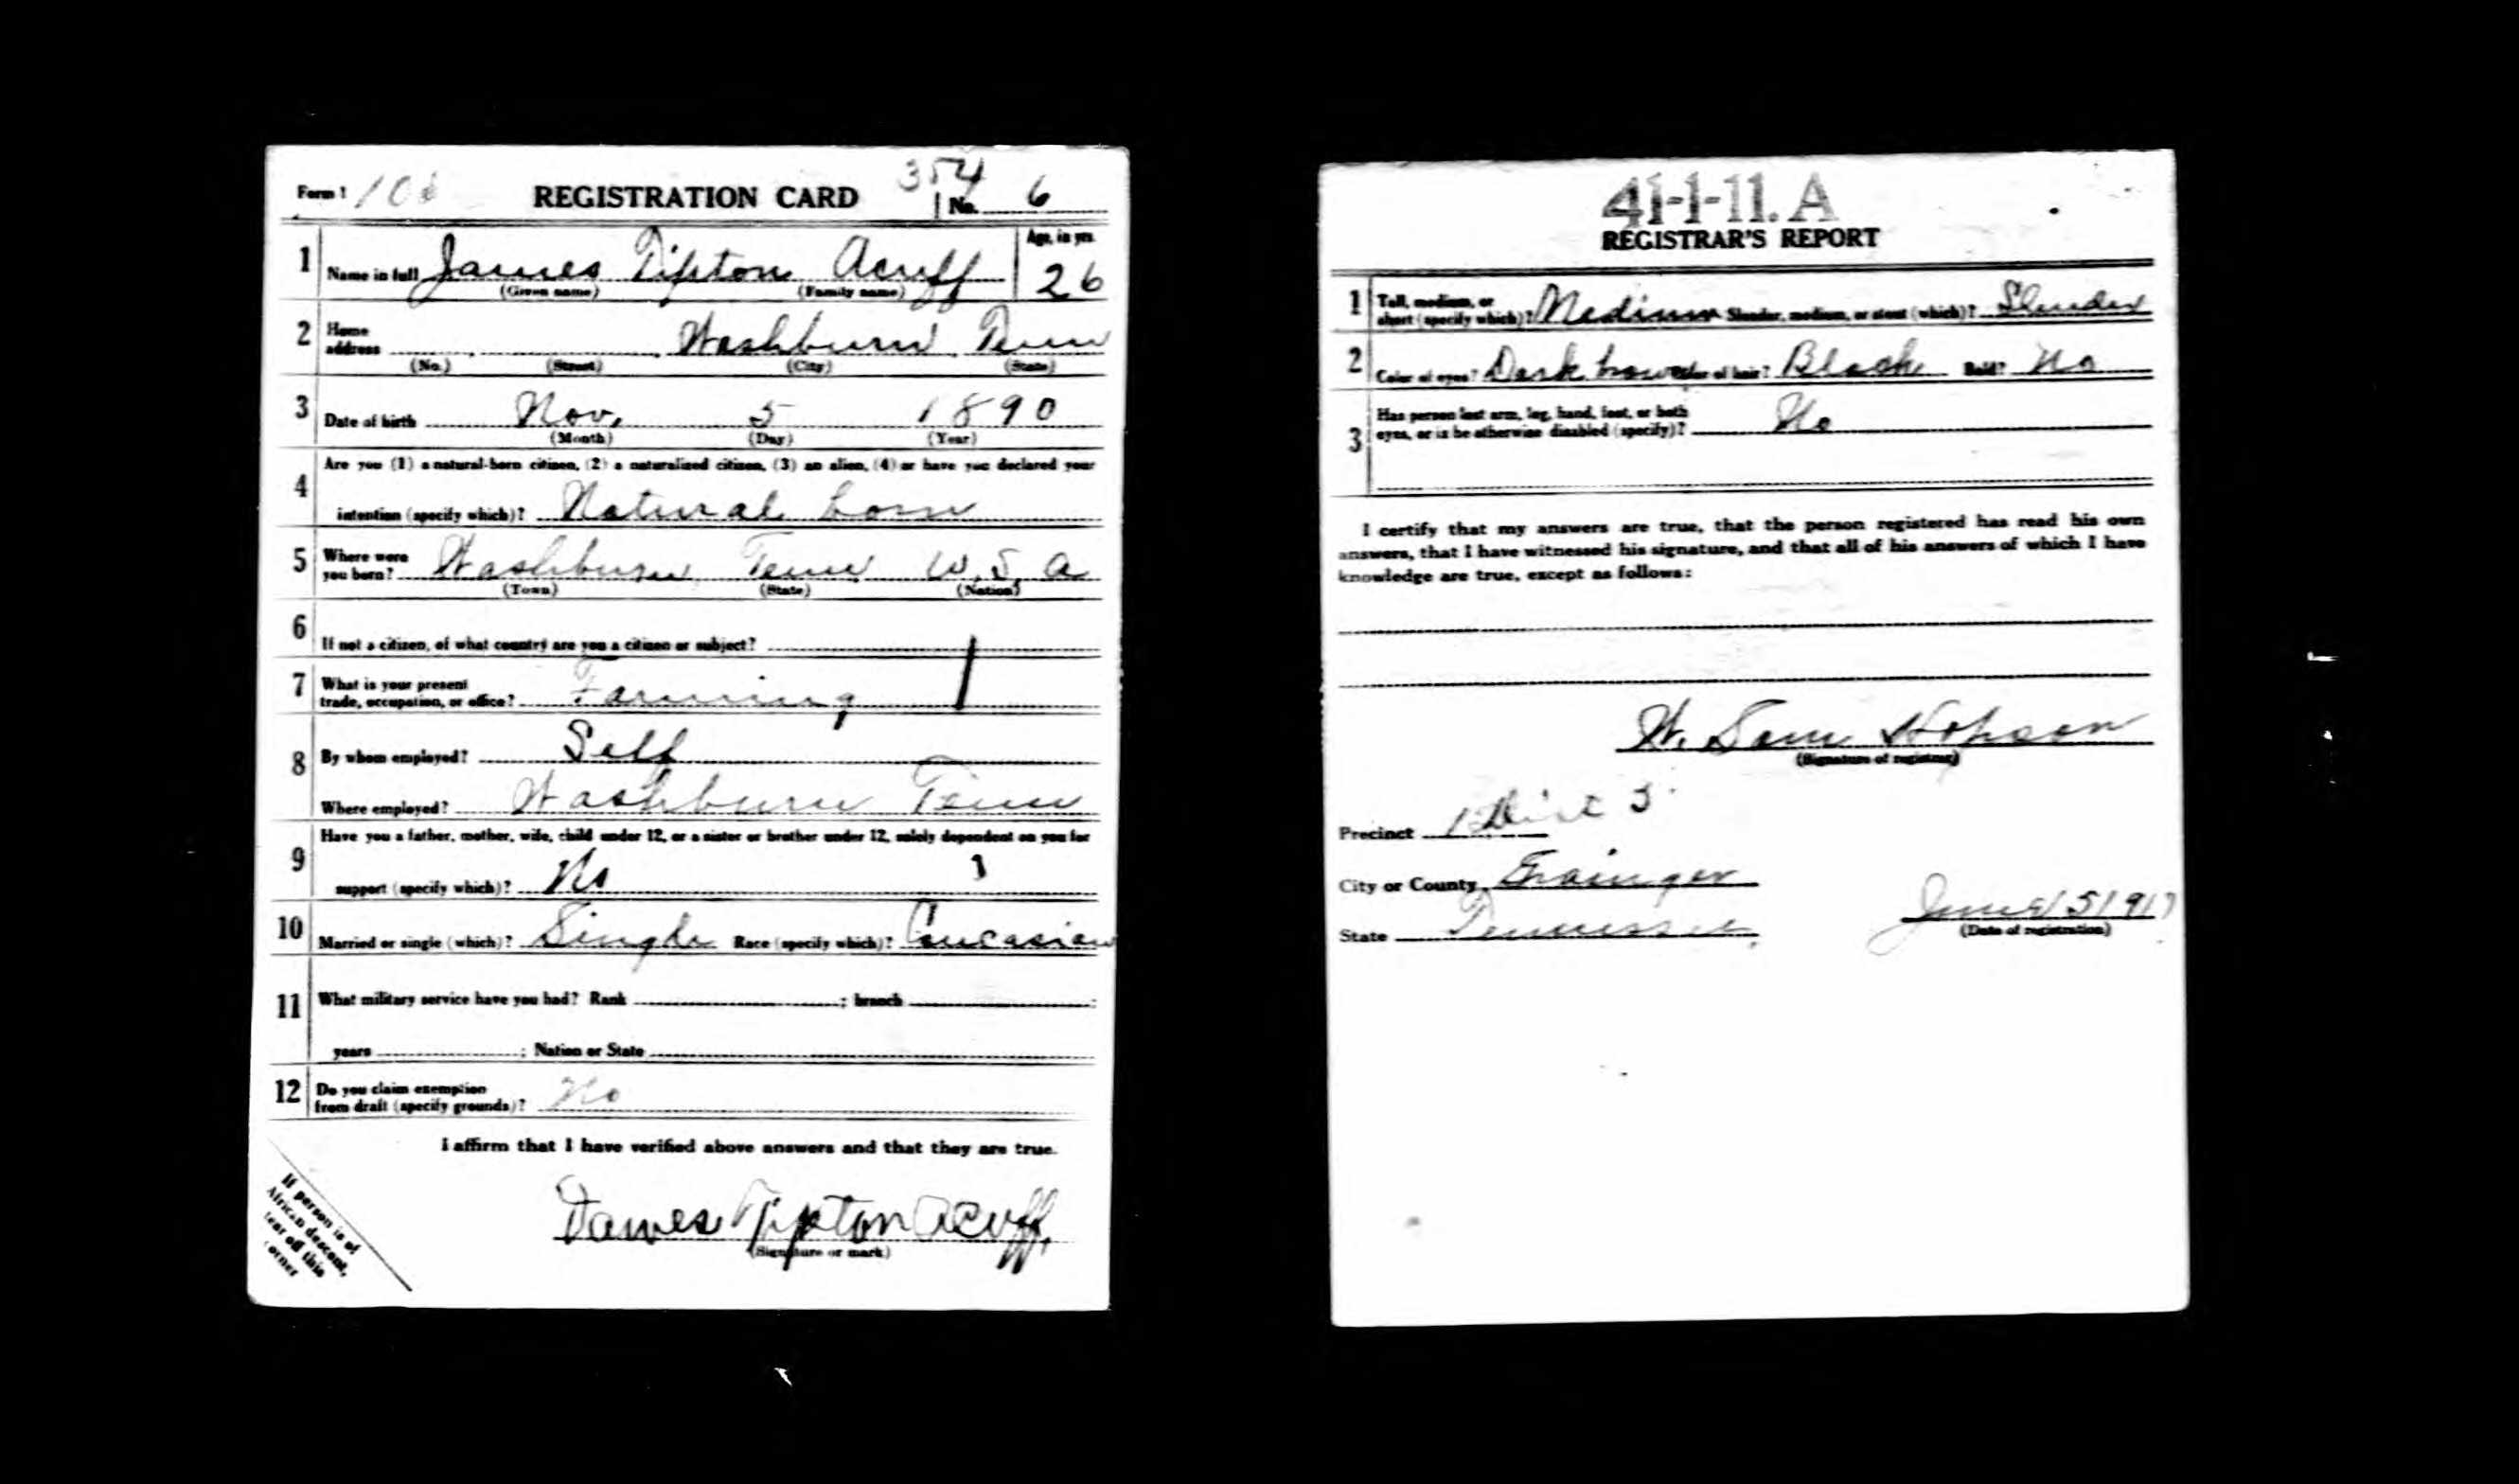 Form 1 REGISTRATION CARD 354 No. 6
1 Name in full James Tipton Acuff Age, in yrs. 26
(Given name) (Family name)
2 Home address Washburn Tenn
(No.) (Street) (City) (State)
3 Date of birth Nov. 5 1890
(Month) (Day) (Year)
4 Are you (1) a natural-born citizen, (2) a naturalized citizen, (3) an alien, (4) or have you declared your
intention (specify which)? Natural born
5 Where were you born? Washburn Tenn U. S. A
(Town) (State) (Nation)
6 If not a citizen, of what country are you a citizen or subject?
7 What is your present
trade, occupation, or office? Farming
8 By whom employed? Self
Where employed? Washburn Tenn
9 Have you a father, mother, wife, child under 12, or a sister or brother under 12, solely dependent on you for
support (specify which)? No
10 Married or single (which)? Single Race (specify which)? Caucasian
11 What military service have you had? Rank ; branch ;
years ; Nation or State
12 Do you claim exemption
from draft (specify grounds)? No
I affirm that I have verified above answers and that they are true.
James Tipton Acuff,
(Signature or mark)
If person is of
African descent,
tear off this
corner
41-1-11. A
REGISTRAR'S REPORT
1 Tall, medium, or
short (specify which)? Medium Slender, medium, or stout (which)? Slender
2 Color of eyes? Dark brown Color of hair? Black Bald? No
3 Has person lost arm, leg, hand, foot, or both
eyes, or is he otherwise disabled (specify)? No
I certify that my answers are true, that the person registered has read his own
answers, that I have witnessed his signature, and that all of his answers of which I have
knowledge are true, except as follows:
W. Sam Hopson
(Signature of registrar)
Precinct Dist 5
City or County Grainger
State Tennessee June 5 1917
(Date of registration)